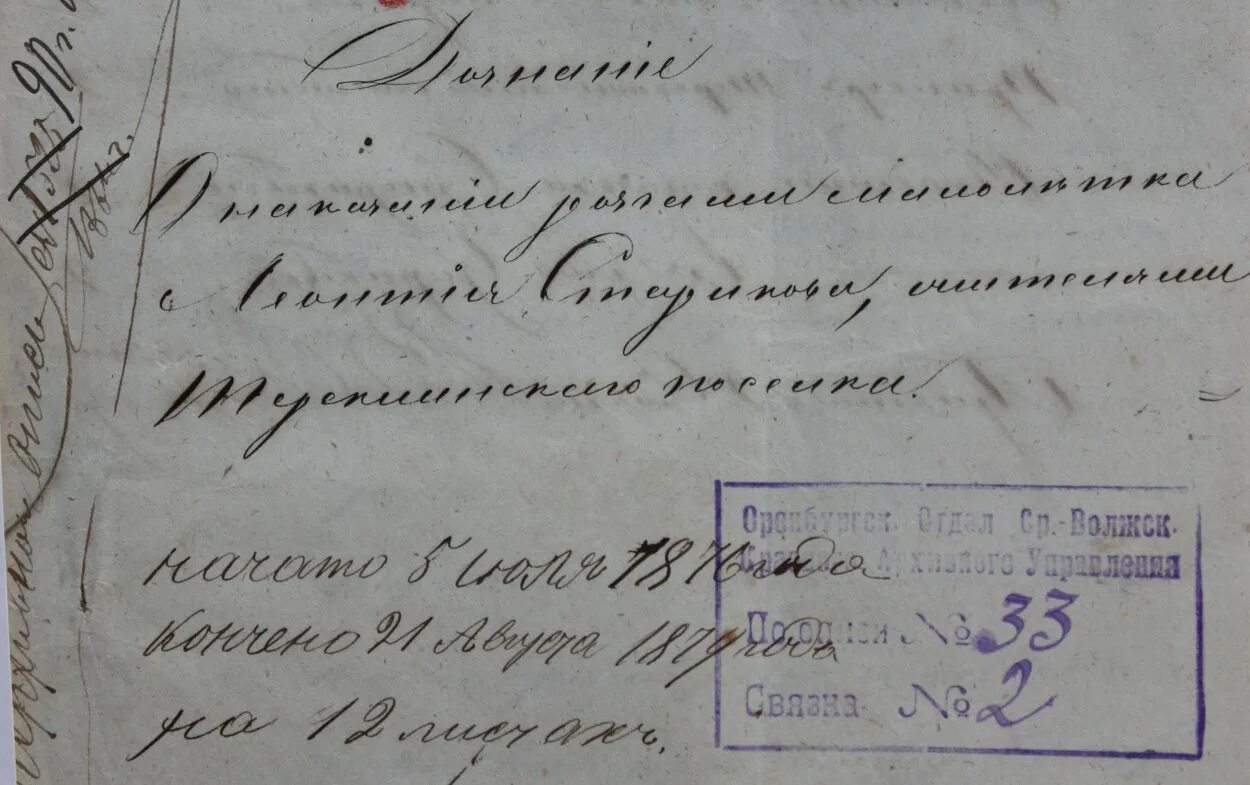 Дознаніе
О наказаніи розгами малолѣтка
Леонтія Старикова, жителями
Тереклинскаго поселка.
Начато 5 Июля 1876 года
Кончено 21 Августа 1879 года
на 12 листахъ.
Оренбургск. Отдел Ср.-Волжск.
Краевого Архивного Управления
По описи № 33
Связка № 2
опись
90 г.